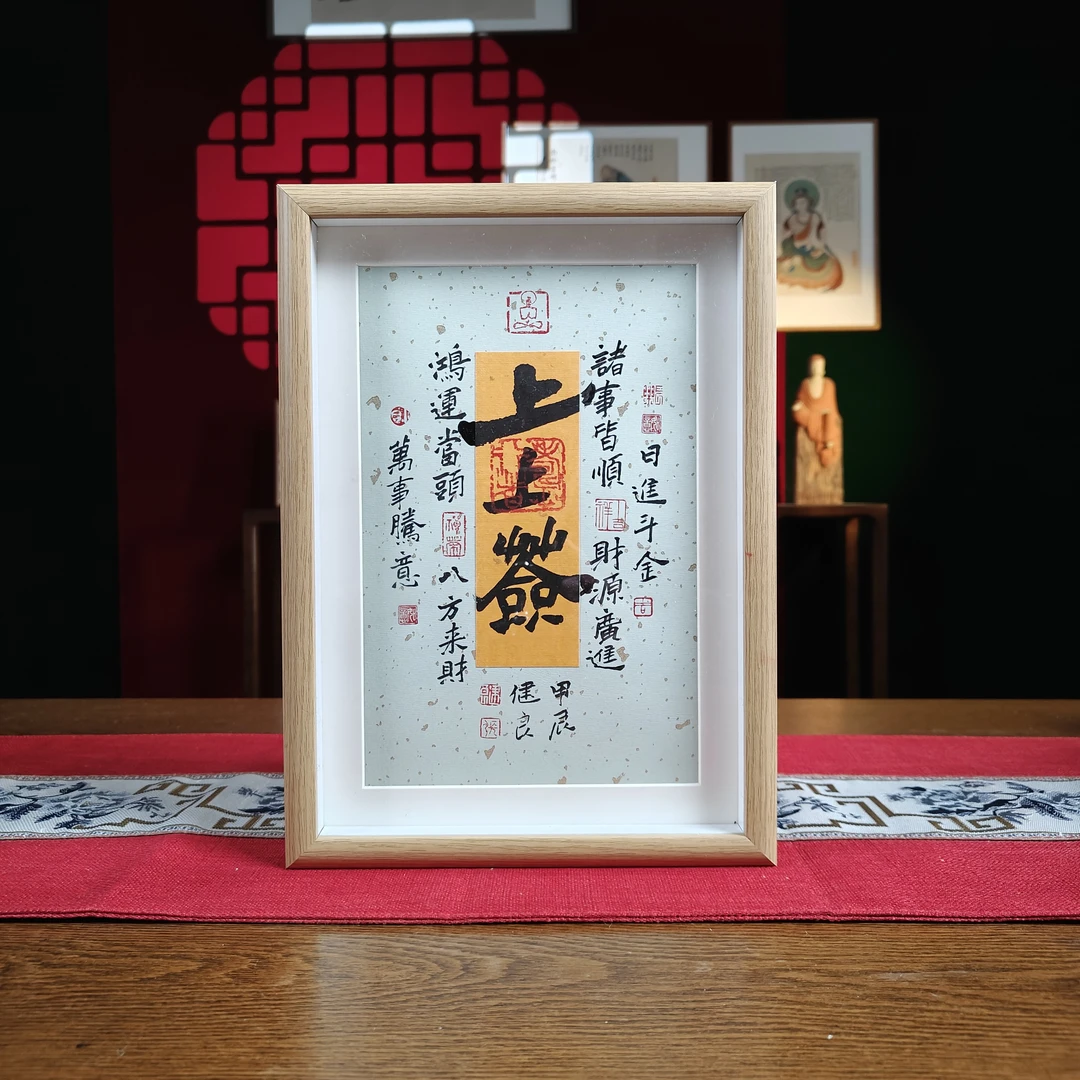 日進斗金
諸事皆順
財源廣進
上上簽
鴻運當頭
八方来財
萬事騰意
甲辰
健良